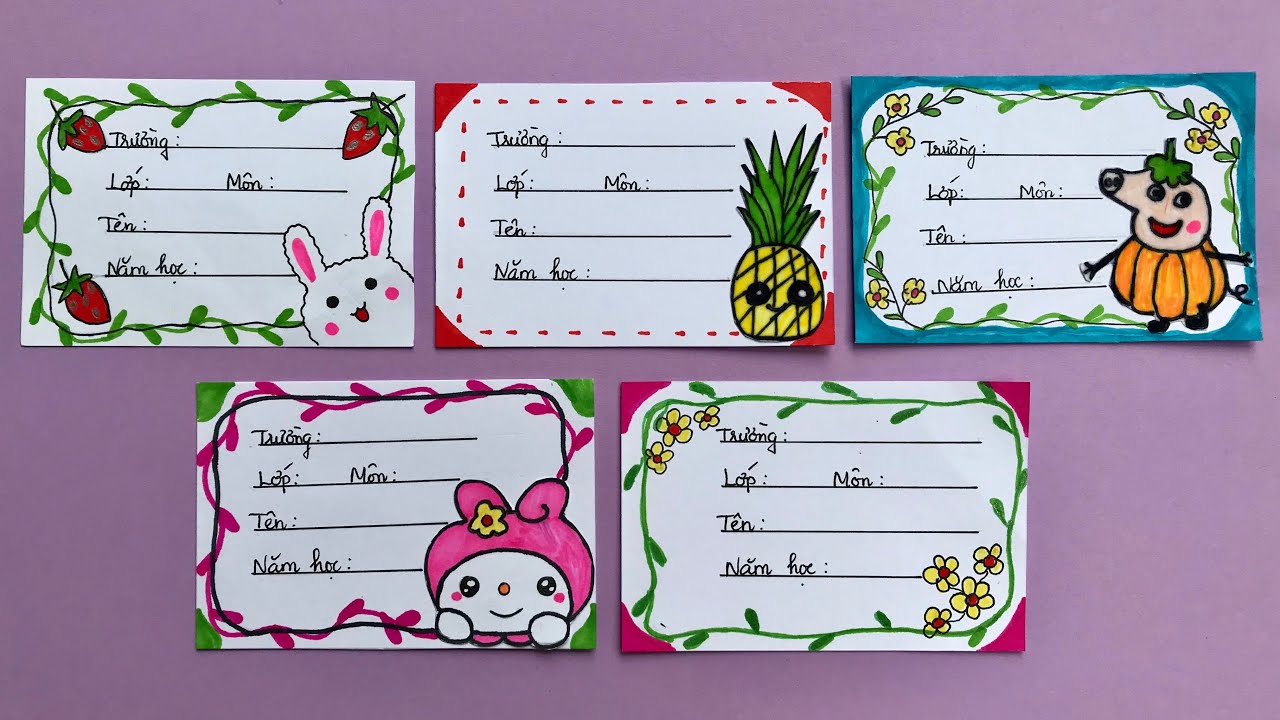 Trường :
Lớp : Môn :
Tên :
Năm học :
Trường :
Lớp : Môn :
Tên :
Năm học :
Trường :
Lớp : Môn :
Tên :
Năm học :
Trường :
Lớp : Môn :
Tên :
Năm học :
Trường :
Lớp : Môn :
Tên :
Năm học :